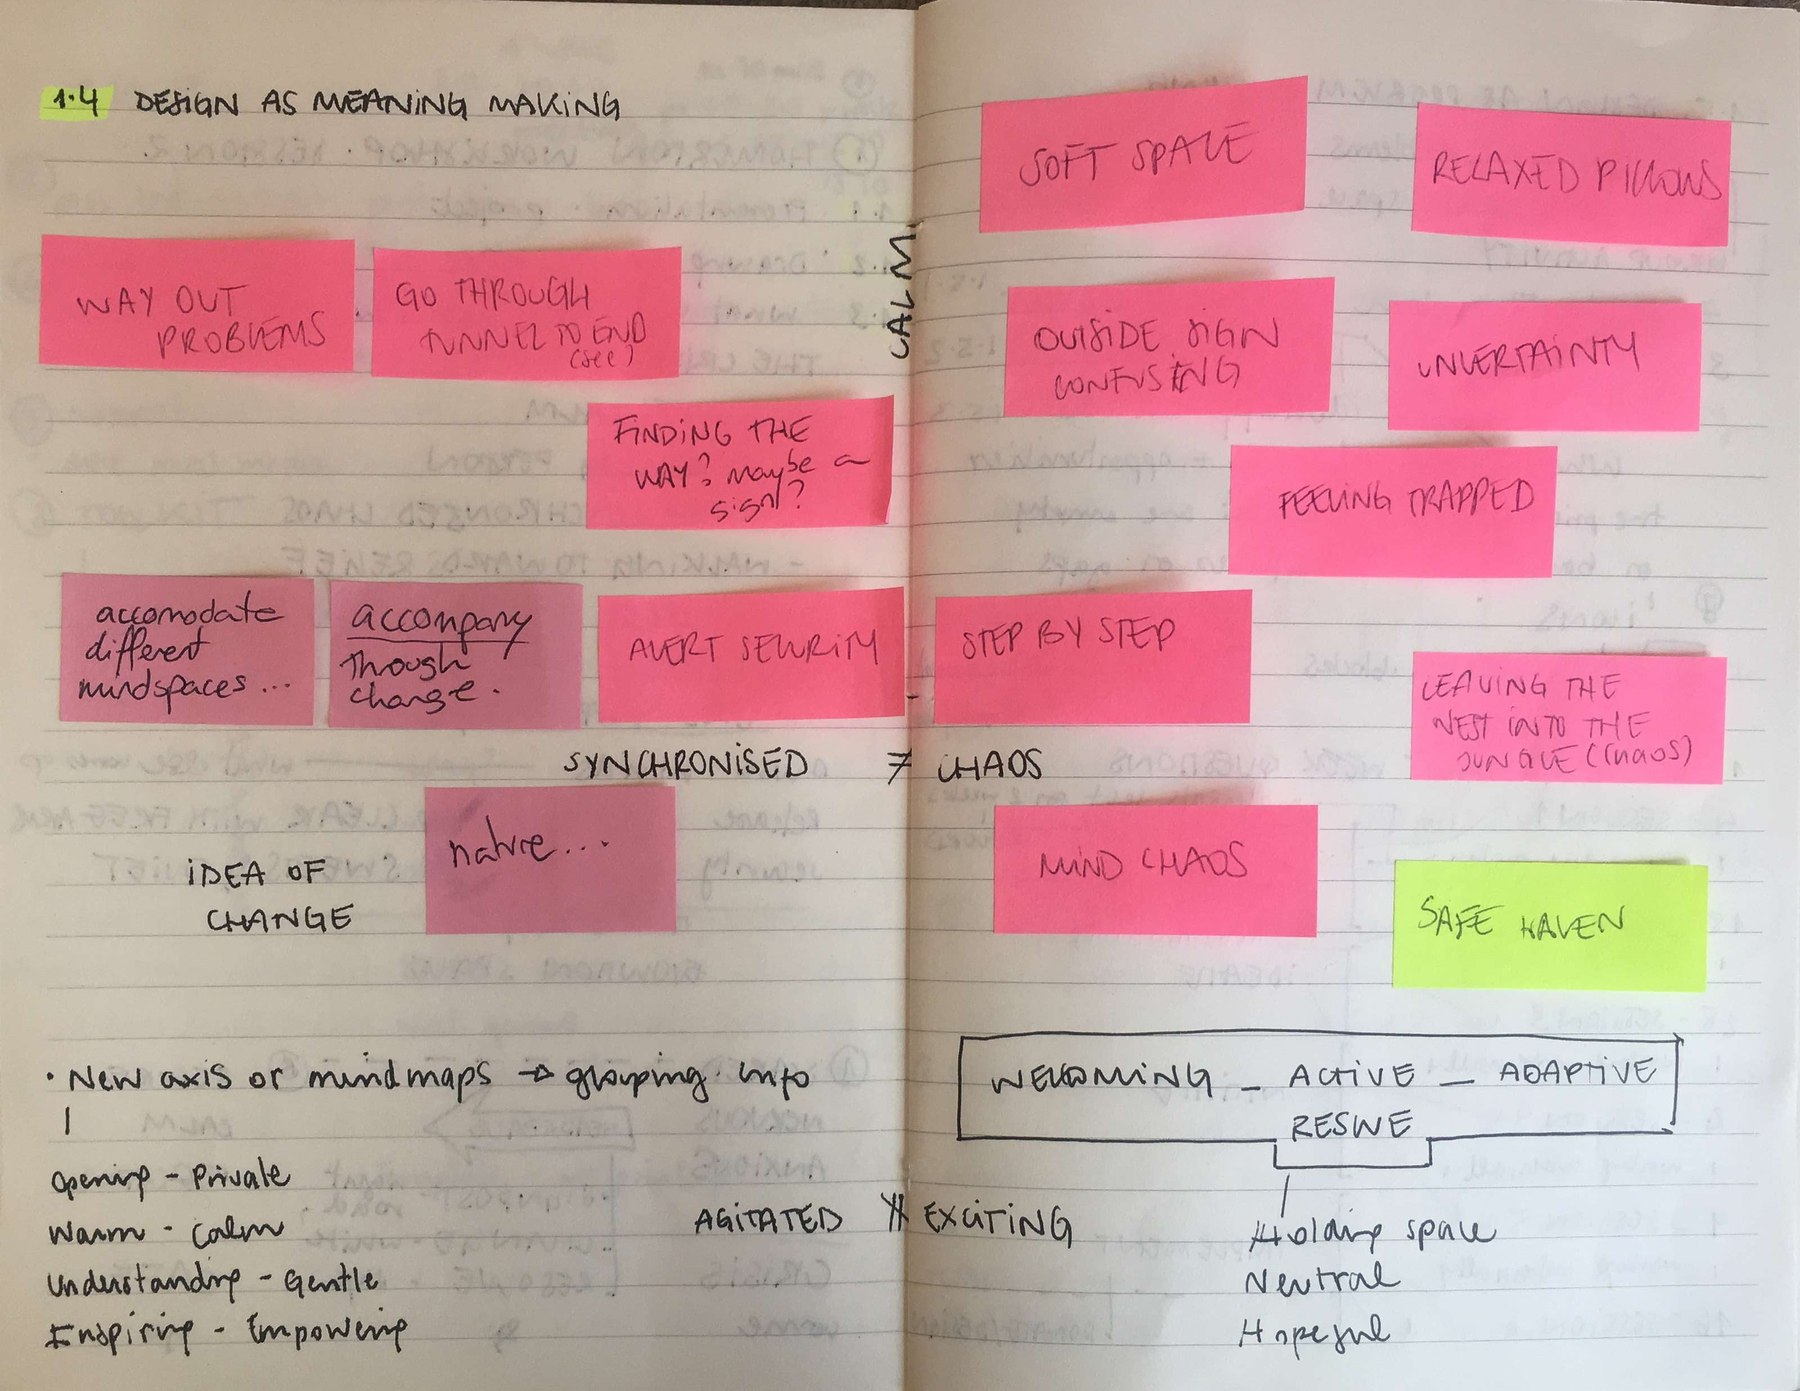 1.4 DESIGN AS MEANING MAKING
WAY OUT
PROBLEMS
GO THROUGH
TUNNEL TO END
(see)
FINDING THE
WAY? maybe a
sign?
accomodate
different
mindspaces...
accompany
through
change.
ALERT SECURITY
SYNCHRONISED ≠ CHAOS
IDEA OF
CHANGE
nature...
• New axis or mindmaps → grouping info
Opening - Private
Warm - Calm
Understanding - Gentle
Inspiring - Empowering
CALM
SOFT SPACE
RELAXED PILLOWS
OUTSIDE SIGN
CONFUSING
UNCERTAINTY
FEELING TRAPPED
STEP BY STEP
LEAVING THE
NEST INTO THE
JUNGLE (CHAOS)
MIND CHAOS
SAFE HAVEN
WELCOMING - ACTIVE - ADAPTIVE
RESCUE
AGITATED EXCITING
Holding space
Neutral
Hopeful